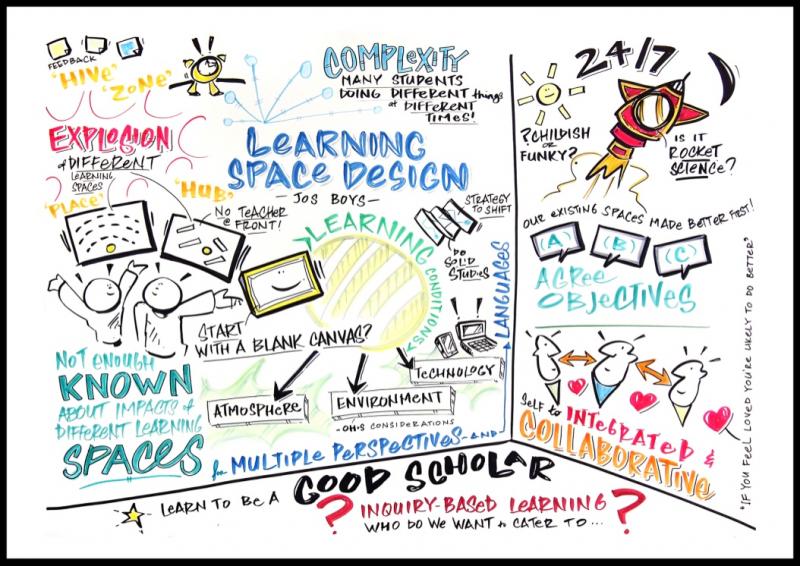 FEEDBACK
'HIVE'
'ZONE'
COMPLEXITY
MANY STUDENTS
DOING DIFFERENT things
at DIFFERENT
TIMES!
EXPLOSION
of DIFFERENT
LEARNING
SPACES
'PLACE'
'HUB'
NO TEACHER
@ FRONT!
LEARNING
SPACE DESIGN
— JOS BOYS —
STRATEGY
TO SHIFT
DO
SOLID
STUDIES
LEARNING CONDITIONS
START
WITH A BLANK CANVAS?
NOT ENOUGH
KNOWN
ABOUT IMPACTS of
DIFFERENT LEARNING
SPACES
ATMOSPHERE
ENVIRONMENT
- OH&S CONSIDERATIONS
TECHNOLOGY
for MULTIPLE PERSPECTIVES - AND
LANGUAGES
24/7
?CHILDISH
OR
FUNKY?
IS IT
ROCKET
SCIENCE?
OUR EXISTING SPACES MADE BETTER FIRST!
(A) (B) (C)
AGREE
OBJECTIVES
Self to INTEGRATED &
COLLABORATIVE
"IF YOU FEEL LOVED YOU'RE LIKELY TO DO BETTER"
LEARN TO BE A GOOD SCHOLAR
? INQUIRY-BASED LEARNING ?
WHO DO WE WANT to CATER TO...